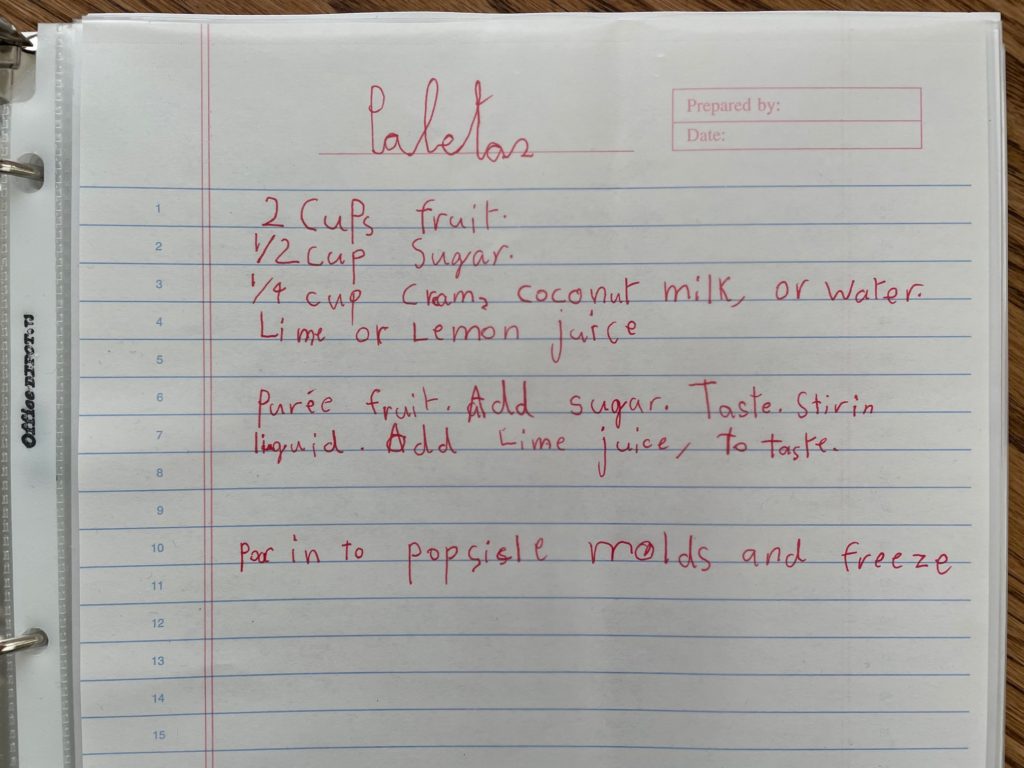 Paletas
Prepared by:
Date:
1 2 Cups fruit.
2 1/2 cup Sugar.
3 1/4 cup Cram, coconut milk, or water.
4 Lime or Lemon juice
5
6 Purée fruit. Add sugar. Taste. Stir in
7 linquid. Add Lime juice, to taste.
8
9
10 poor in to popsisle molds and freeze
11
12
13
14
15
Office DEPOT